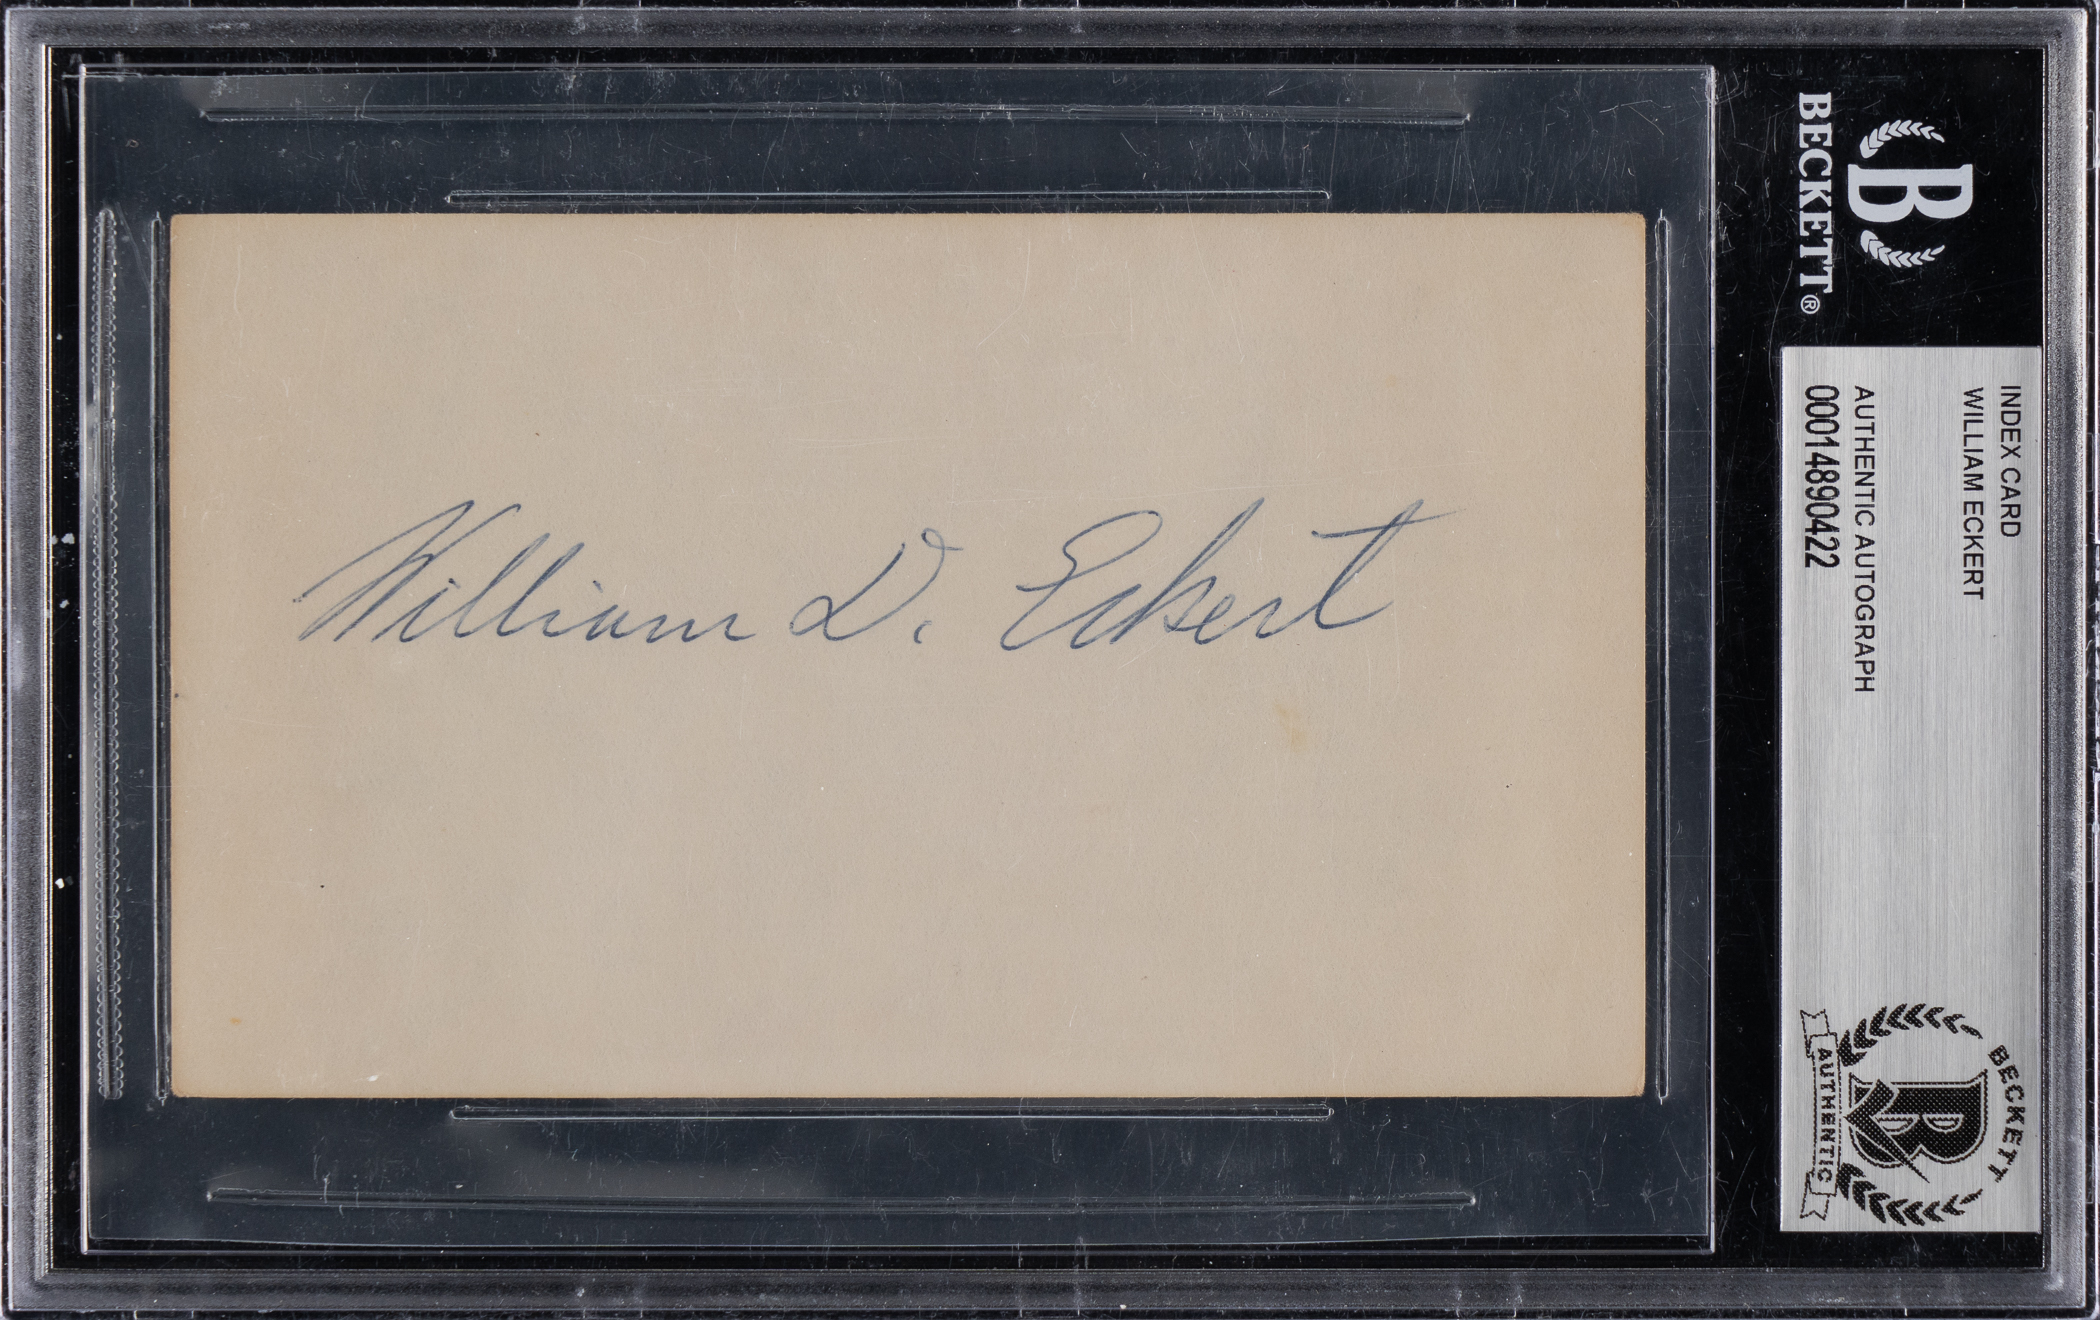 William D. Eckert
BECKETT®
B
INDEX CARD
WILLIAM ECKERT
AUTHENTIC AUTOGRAPH
00014890422
BECKETT
B
AUTHENTIC